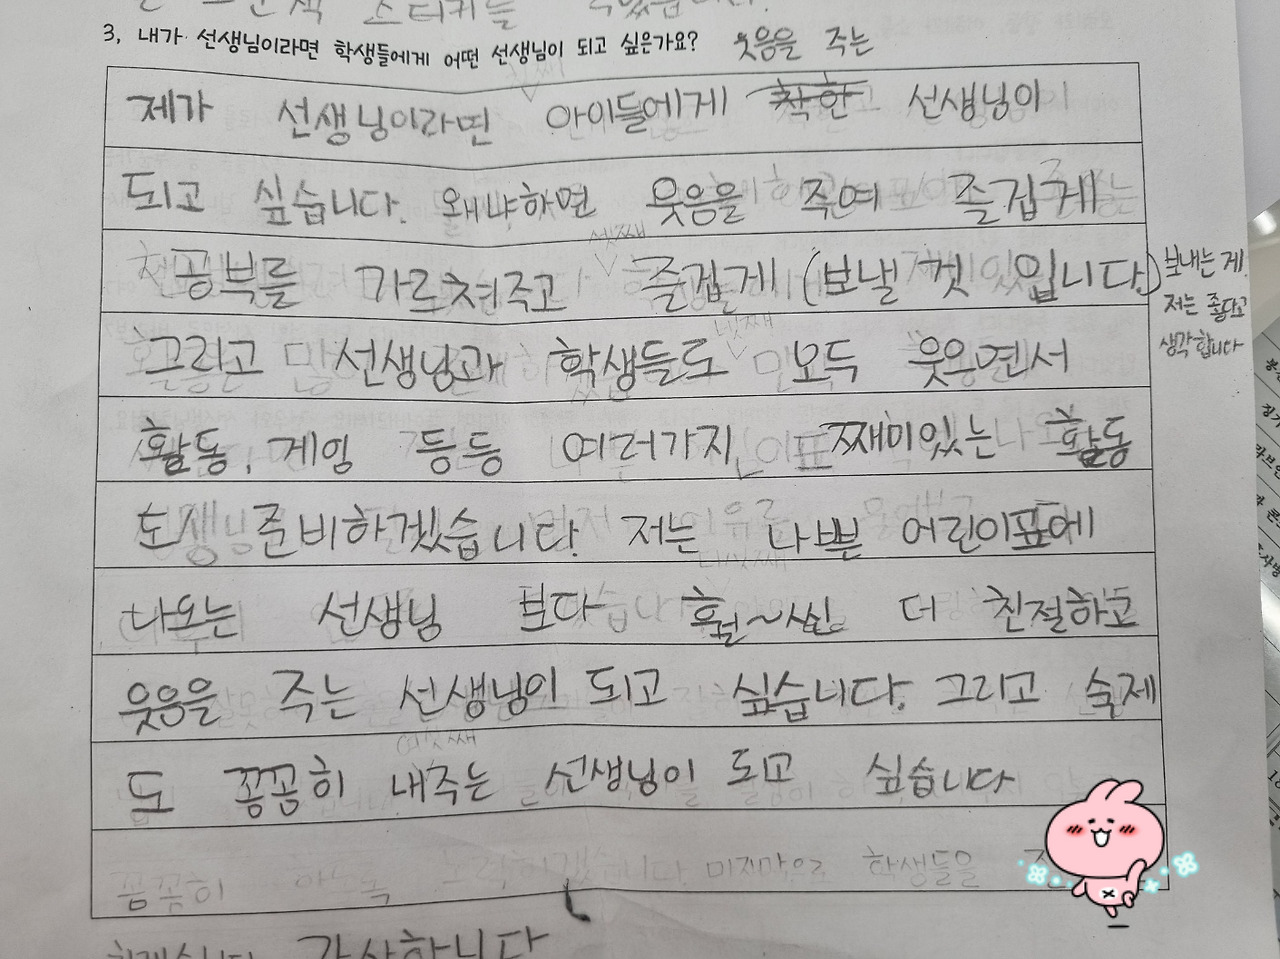 스티커를
3, 내가 선생님이라면 학생들에게 어떤 선생님이 되고 싶은가요? 웃음을 주는
제가 선생님이라면 아이들에게 착한 선생님이
되고 싶습니다. 왜냐하면 웃음을 주여 즐겁게
공부를 가르쳐주고 즐겁게 (보낼 껏 입니다.) 보내는 게
저는 좋다고
생각합니다
그리고 선생님과 학생들도 모두 웃으면서
활동, 게임 등등 여러가지, 째미있는 활동
도 준비하겠습니다. 저는 나쁜 어린이표에
나오는 선생님 보다 훨~씬 더 친절하고
웃음을 주는 선생님이 되고 싶습니다. 그리고 숙제
도 꼼꼼히 내주는 선생님이 되고 싶습니다
감사합니다